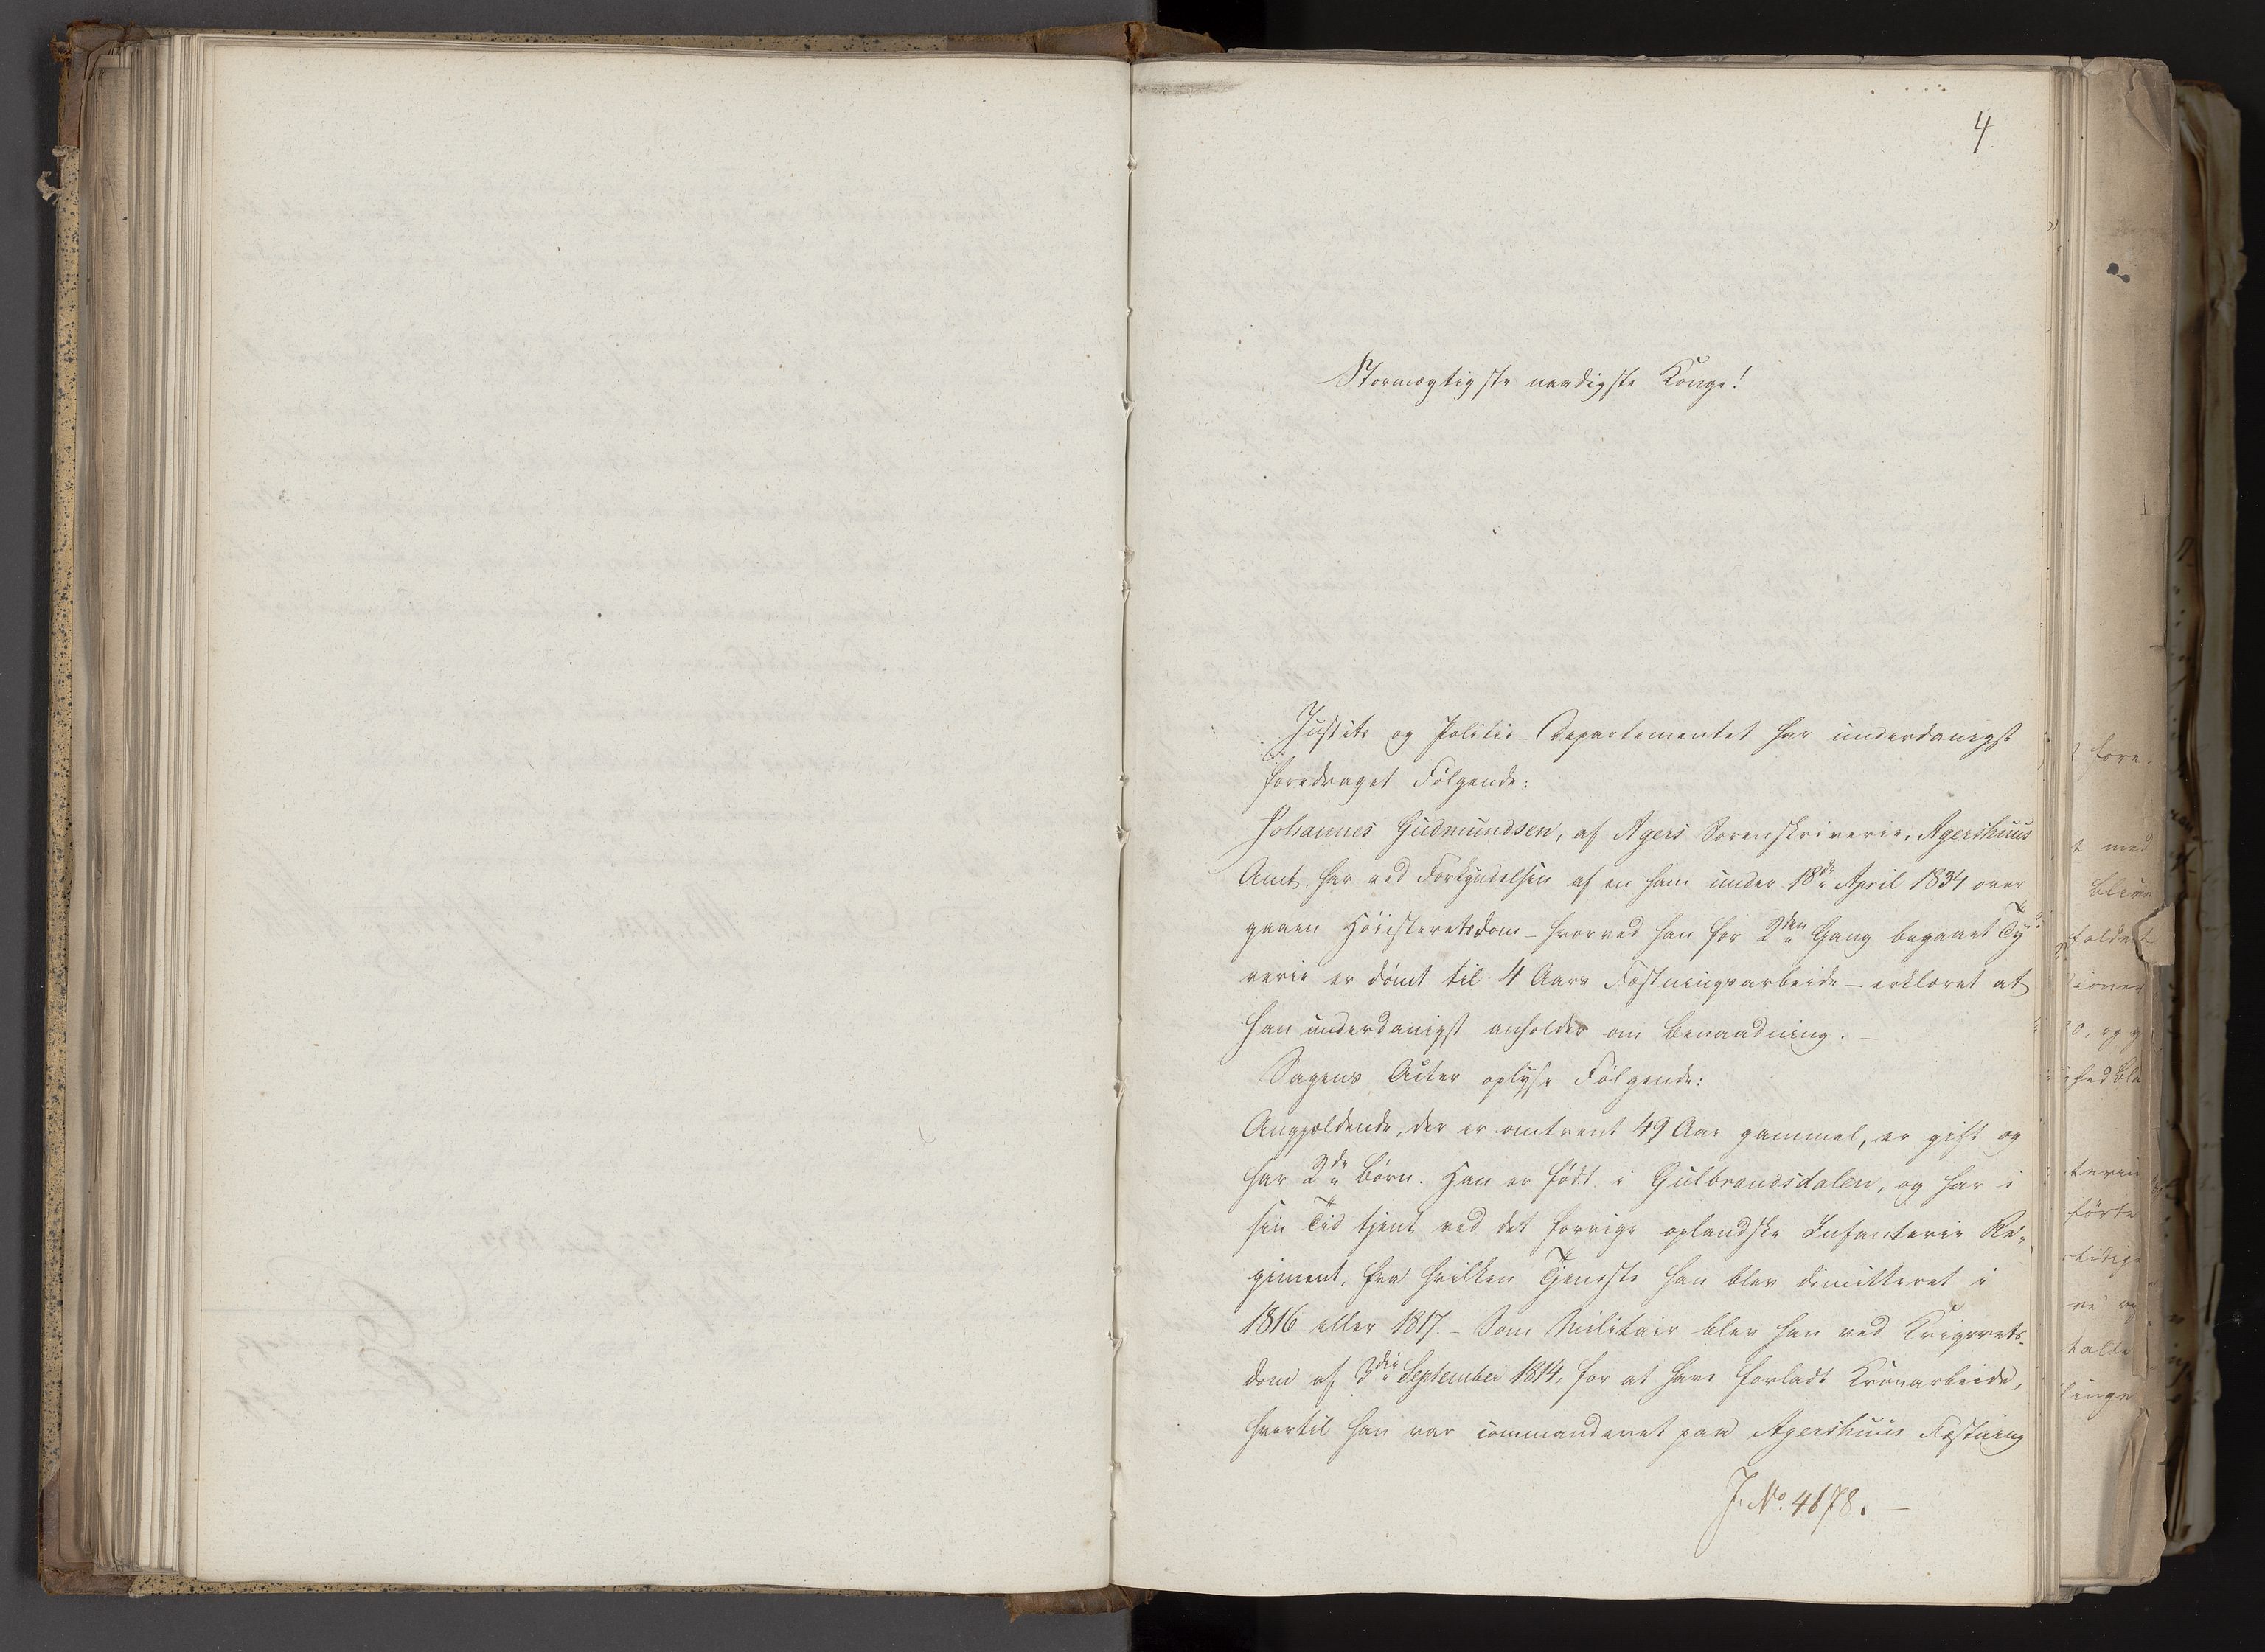 4.
Stormægtigste naadigste Konge!
Justits og Politie-Departementet har underdanigst
foredraget Følgende:
Johannes Gudmundsen, af Agers Sorenskriverie, Agershuus
Amt, har ved Forkyndelsen af en ham under 18de April 1834 over
gaaen Höiesteretsdom - hvorved han for 2den Gang begaaet Ty-
verie er dömt til 4 Aars Fæstningsarbeide - erklæret at
han underdanigst anholder om Benaadning. -
Sagens Acter oplyse Følgende:
Angjældende, der er omtrent 49 Aar gammel, er gift og
har 2de Børn. Han er født i Gulbrandsdalen, og har i
sin Tid tjent ved det forrige oplandske Infanterie Re-
giment, fra hvilken Tjeneste han blev dimitteret i
1816 eller 1817. - Som Militair blev han ved Krigsrets-
dom af 3die September 1814, for at have forladt Kronarbeide,
hvortil han var commanderet paa Agershuus Fæstning
J. No. 4678. -